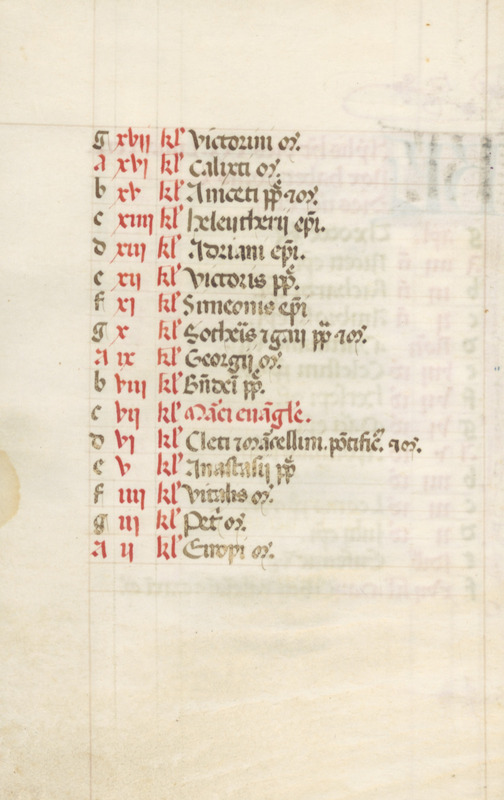 g xvii kl' Victorini or.
A xvj kl' Calixti or.
b xv kl' Aniceti pp̄ ⁊ or.
c xiiii kl' heleutherij ep̄i.
d xiii kl' Adriani ep̄i.
e xii kl' Victoris pp̄.
f xi kl' Simeonis ep̄i
g x kl' Sotheris ⁊ gaij pp̄ ⁊ or.
A ix kl' Georgij or.
b viii kl' pp̄.
c vii kl' Marci euāgl'e.
d vi kl' Cleti ⁊ marcellini. pōtific̄. ⁊ or.
e v kl' Anastasij pp̄
f iiii kl' Vitalis or.
g iii kl' Pet' or.
A ii kl' Eutropi or.